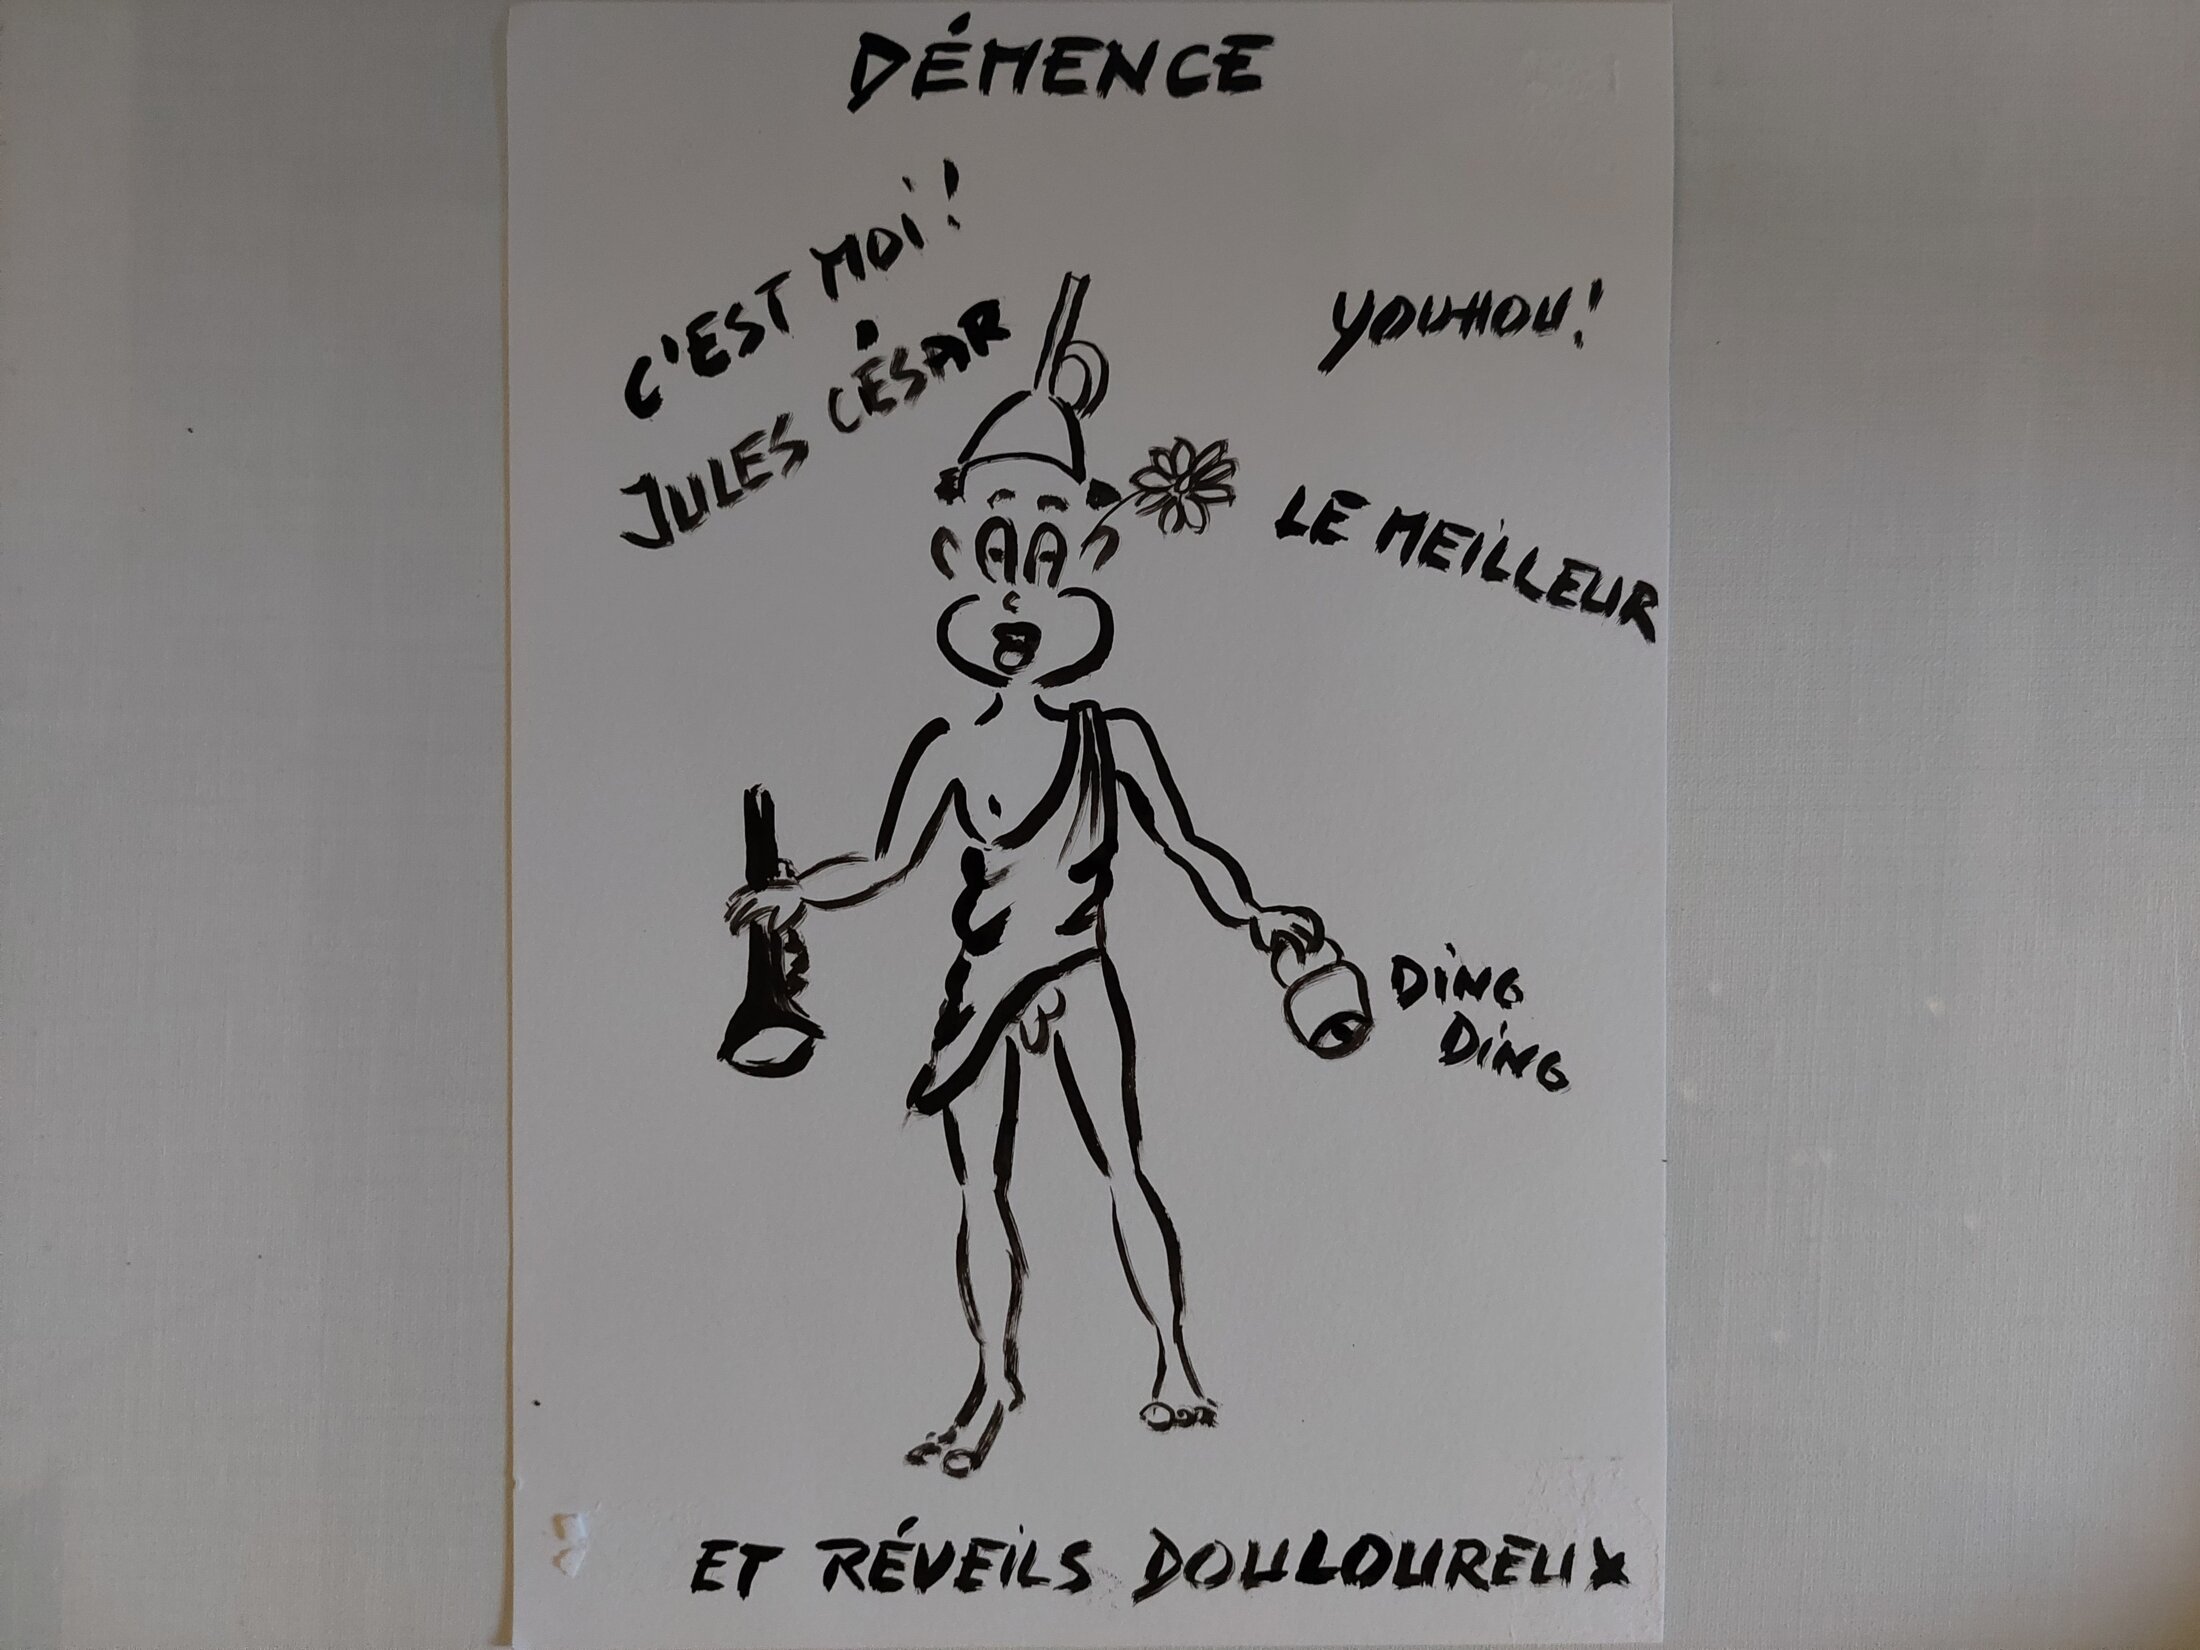 DÉMENCE
C'EST MOI!
JULES CÉSAR
YOUHOU!
LE MEILLEUR
DING
DING
ET RÉVEILS DOULOUREUX